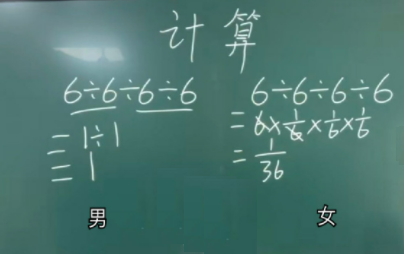 计算
6÷6÷6÷6
=1÷1
=1
男
6÷6÷6÷6
=6×1/6×1/6×1/6
=1/36
女